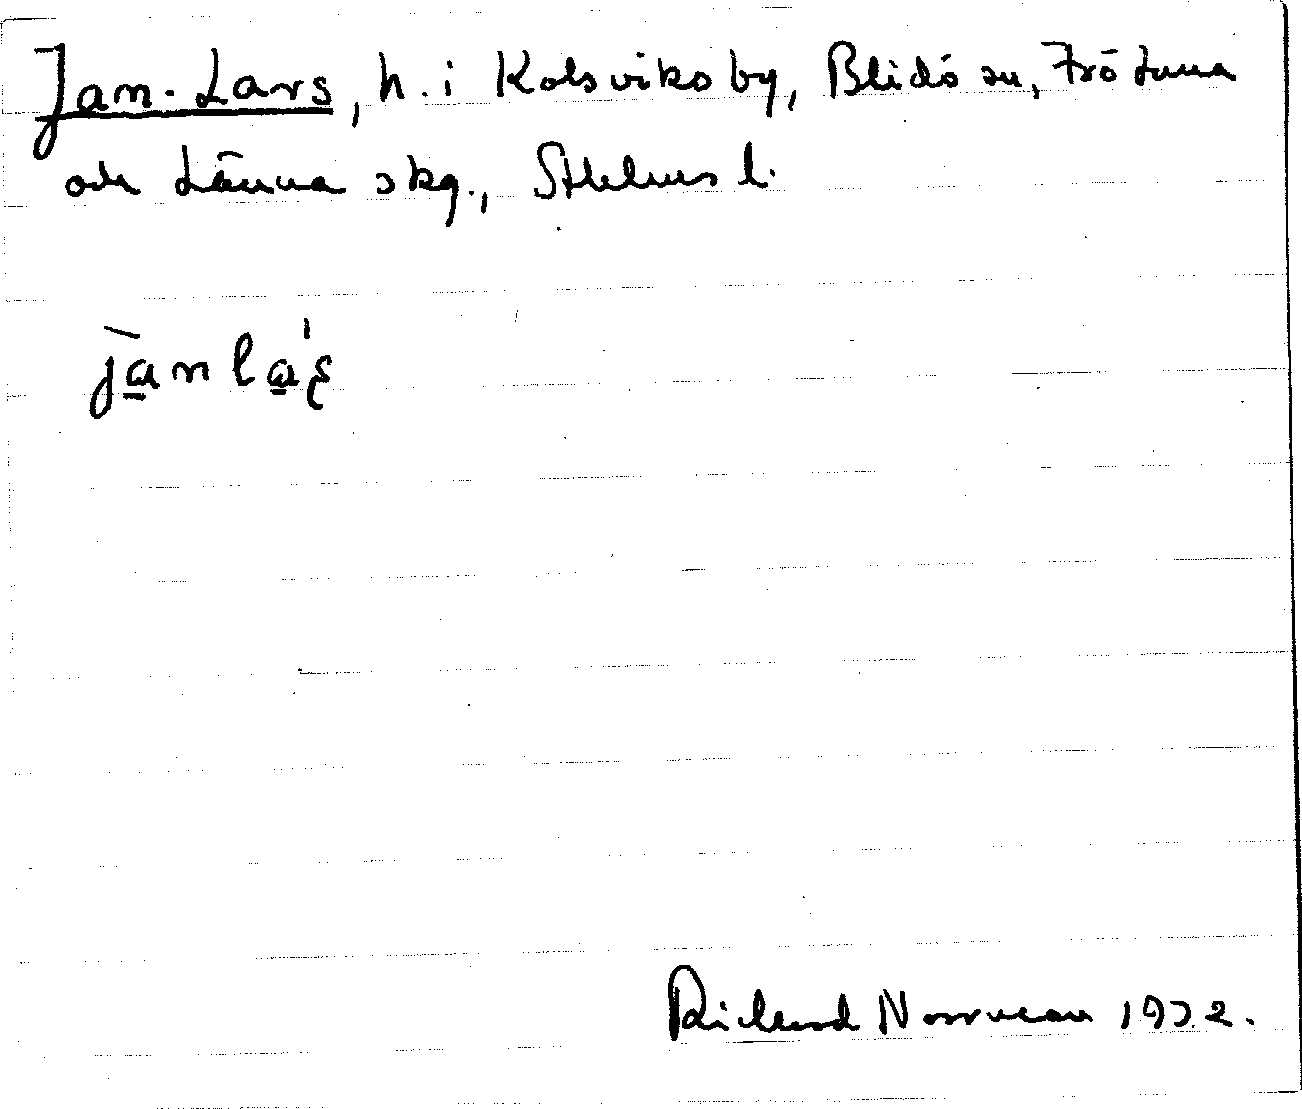 Jan-Lars, h. i Kolsviks by, Blidö sn, Frötuna
och Länna skg., Sthlms l.
jànlá'ʂ
Richard Norrman 1932.